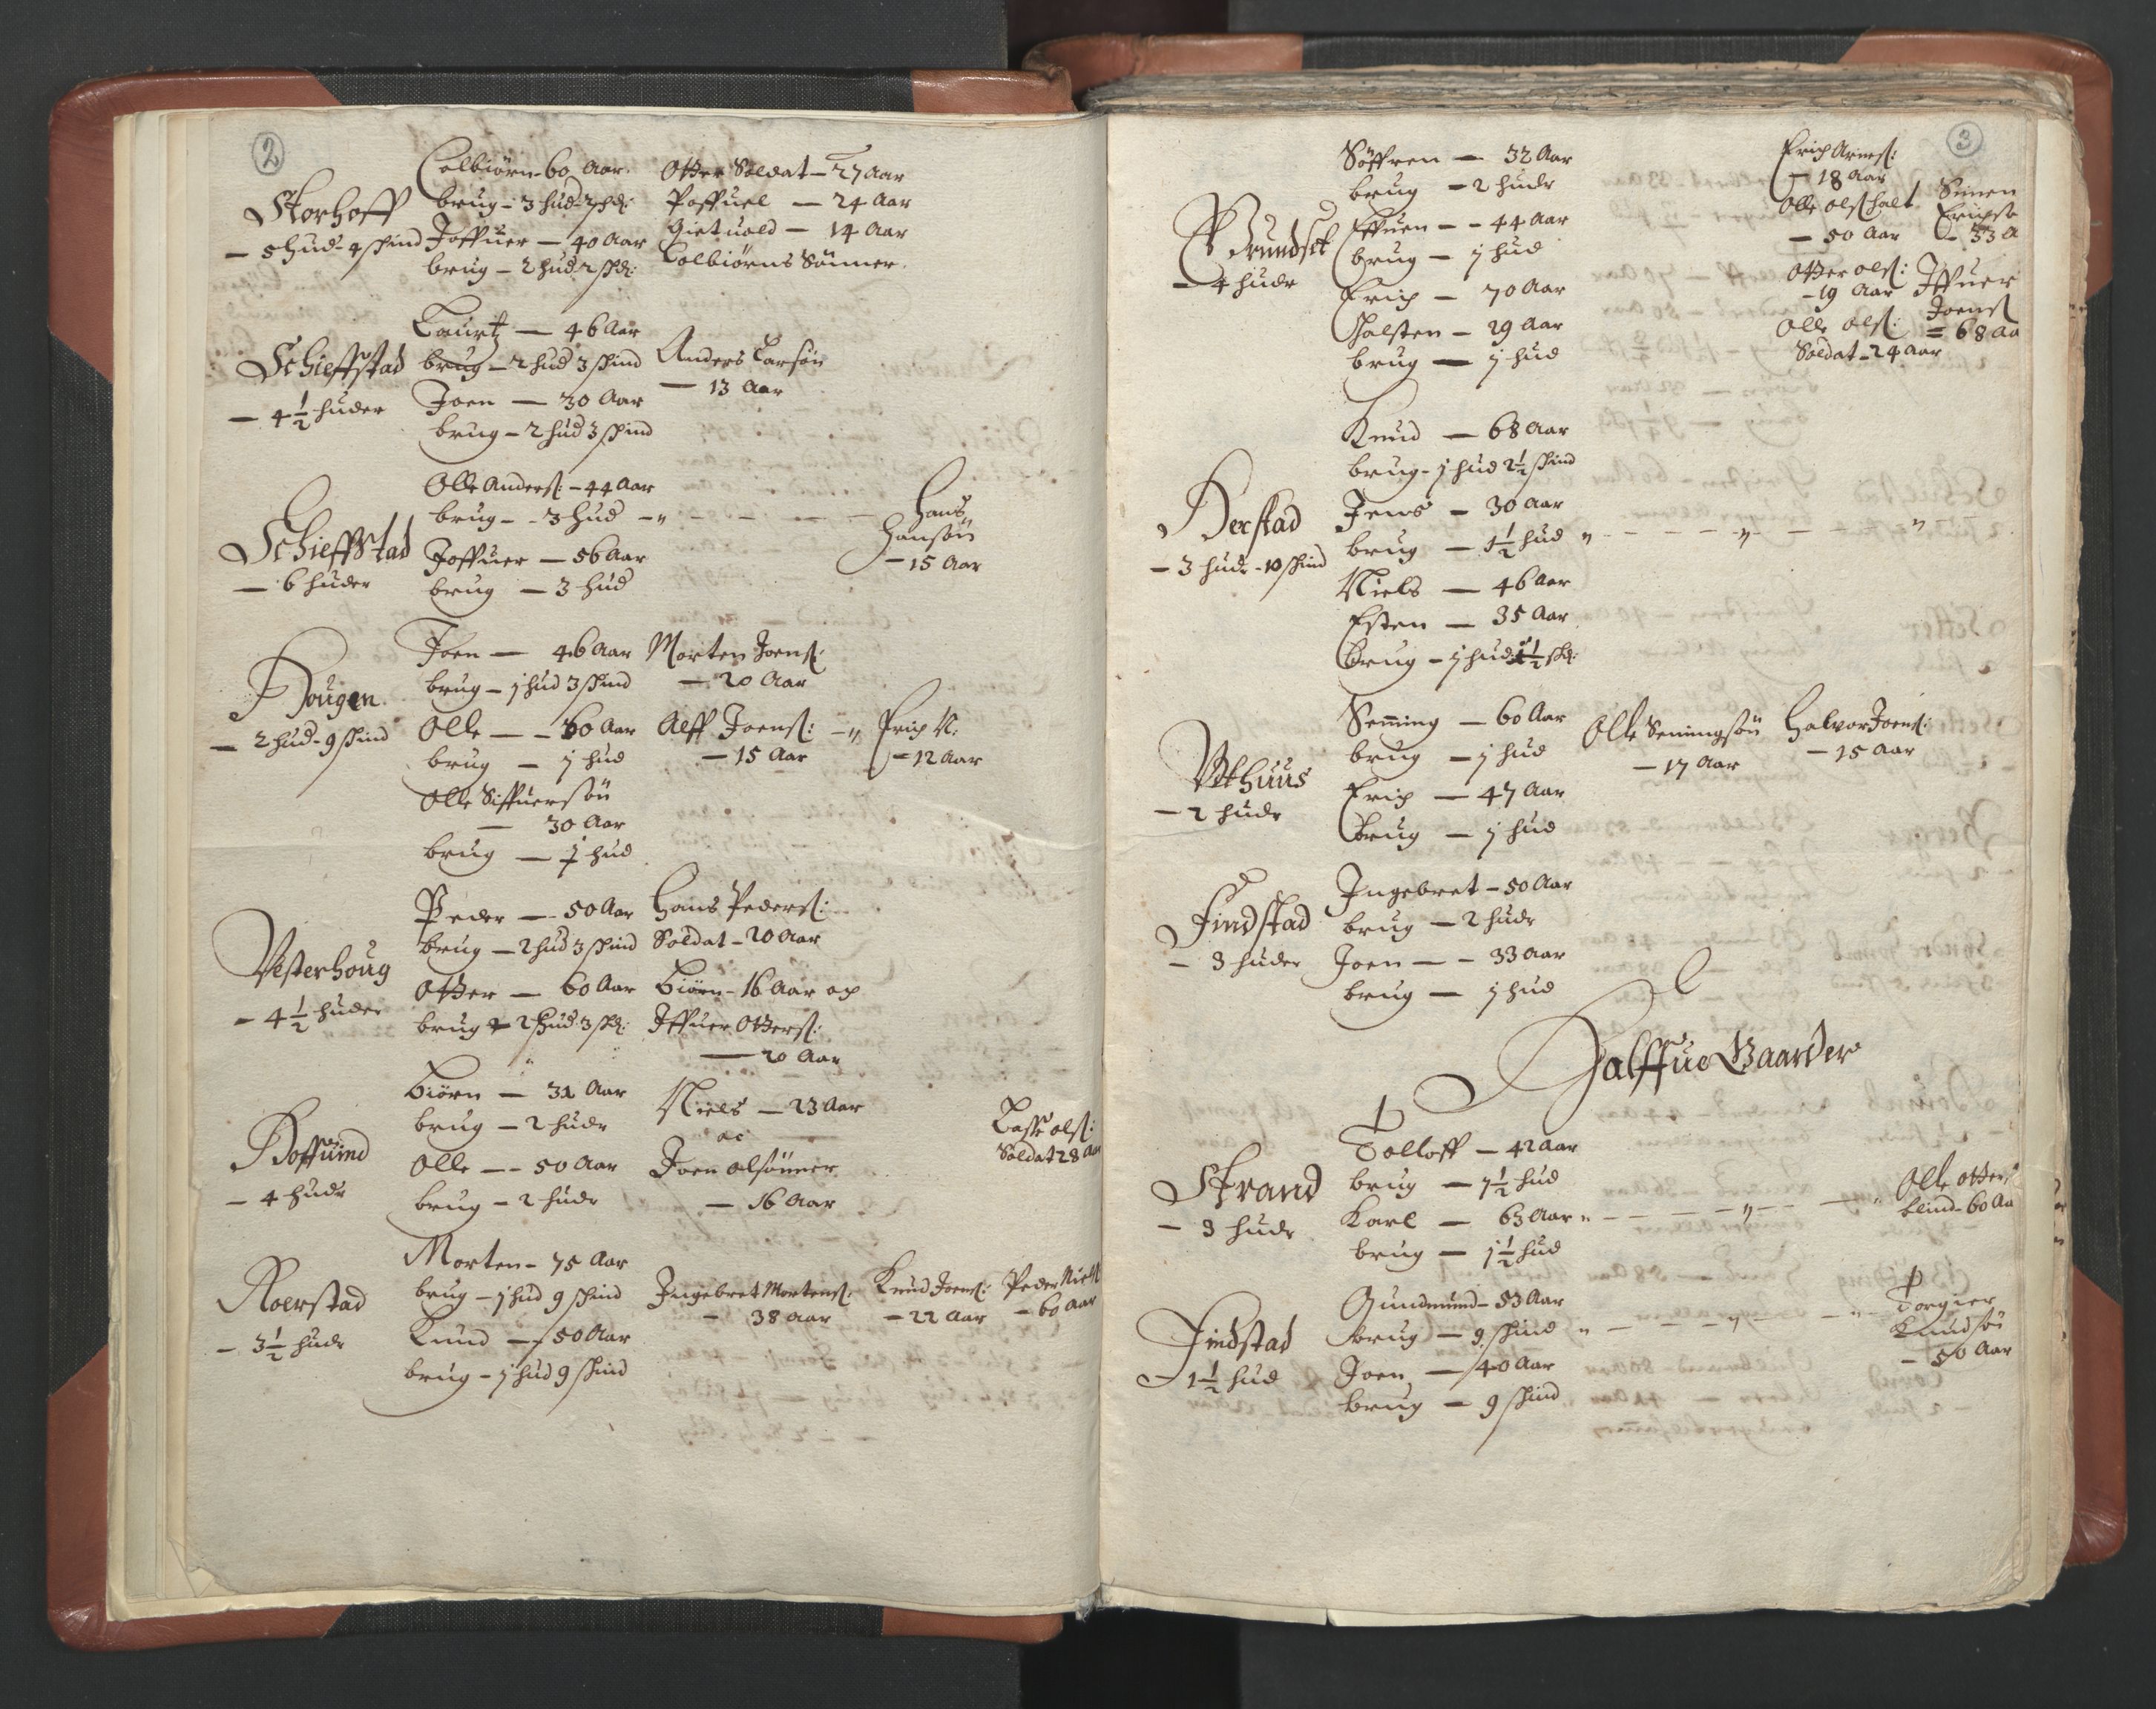 2
Storhoff
- 5 hud - 4 skind
Colbiörn - 60 Aar.
brug - 3 hud - 2 skd:
Joffuer - 40 Aar
brug - 2 hud 2 skd:
Otter Soldat - 27 Aar
Poffuel - 24 Aar
Gietuold - 14 Aar
Colbiörns Sönner.
Schieffstad
- 4 1/2 huder
Laurtz - 46 Aar
brug - 2 hud 3 skind
Joen - 30 Aar
brug - 2 hud 3 skind
Anders Larsön
- 13 Aar
Schieffstad
- 6 huder
Olle Anders: - 44 Aar
brug - 3 hud
Joffuer - 56 Aar
brug - 3 hud
Hans
Hansön
- 15 Aar
Hougen
- 2 hud - 9 skind
Joen - 46 Aar
brug - j hud 3 skind
Olle - 60 Aar
brug - j hud
Olle Siffuersön
- 30 Aar
brug - j hud
Morten Joens:
- 20 Aar
Alff Joens:
- 15 Aar
Erich N:
- 12 Aar
Vesterhoug
- 4 1/2 huder
Peder - 50 Aar
brug - 2 hud 3 skind
Otter - 60 Aar
brug - 2 hud 3 skd:
Hans Peders:
Soldat - 20 Aar
Biörn - 16 Aar och
Iffuer Otters:
- 20 Aar
Hoffuind
- 4 hude
Biörn - 31 Aar
brug - 2 hude
Olle - 50 Aar
brug - 2 hude
Niels - 23 Aar
oc
Joen olsönner
- 16 Aar
Lasse ols:
Soldat 28 Aar
Roerstad
- 3 1/2 hude
Morten - 75 Aar
brug - j hud 9 skind
Knud - 50 Aar
brug - j hud 9 skind
Ingebret Mortens:
- 38 Aar
Knud Joens:
- 22 Aar
Peder Niels
- 60 Aar
3
Grundset
- 4 hude
Söffren - 32 Aar
brug - 2 hude
Effuen - 44 Aar
brug - j hud
Erich - 70 Aar
Halsten - 29 Aar
brug - j hud
Erich Arnes:
- 18 Aar
Olle ols halt
- 50 Aar
Otter ols:
- 19 Aar
Olle ols:
Soldat - 24 Aar
Simen
Erichsø
- 33 A
Iffuer
Joens
= 68 Aa
Herstad
- 3 hude - 10 skind
Knud - 68 Aar
brug - j hud 2 1/2 skind
Jens - 30 Aar
brug - 1 1/2 hud
Niels - 46 Aar
Esten - 35 Aar
brug - j hud 1 1/2 skd:
Vthuus
- 2 hude
Seming - 60 Aar
brug - j hud
Erich - 47 Aar
brug - j hud
Olle Semingsön
- 17 Aar
Halvor Joens:
- 15 Aar
Findstad
- 3 huder
Ingebret - 50 Aar
brug - 2 hude
Joen - 33 Aar
brug - j hud
Halffue Gaarder
Strand
- 3 hude
Tolloff - 42 Aar
brug - 1 1/2 hud
Karl - 63 Aar
brug - j 1/2 hud
Olle otters
blind - 60 Aa
Findstad
- 1 1/2 hud
Gundmund - 53 Aar
brug - 9 skind
Joen - 40 Aar
brug - 9 skind
Torgier
Knudsön
- 50 Aar